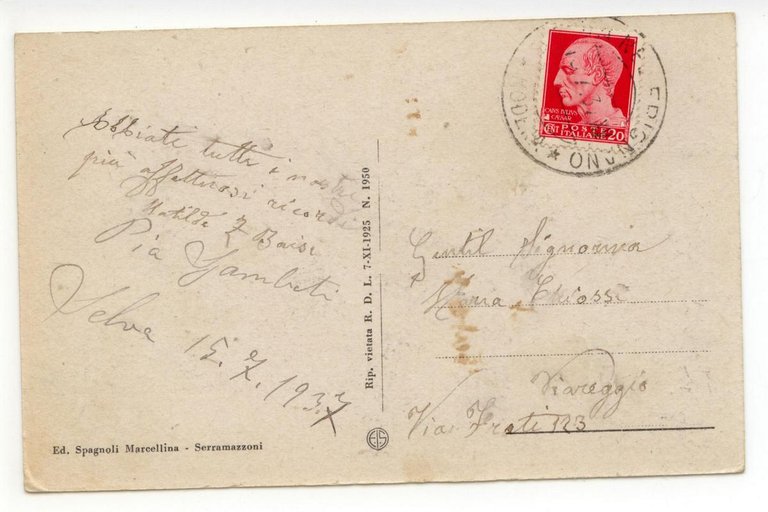 Abbiate tutti i nostri
più affettuosi ricordi
Matilde Z Baisi
Pia Gambeti
Selva 15.7.1937
Ed. Spagnoli Marcellina - Serramazzoni
Rip. vietata R. D. L. 7-XI-1925 N. 1950
CAIVS IVLIVS
CAESAR
CENT POSTE ITALIANE 20
EDIGNANO
Gentil Signorina
Chiossi
Viareggio
Via Frati 123